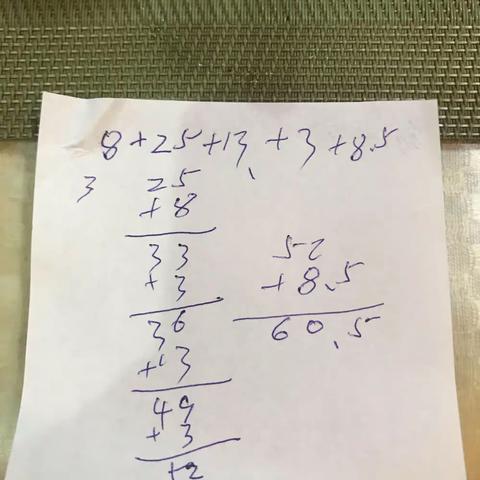 8+25+13+3+8.5
3
25
+8
33
+3
36
+13
49
+3
52
+8.5
60.5